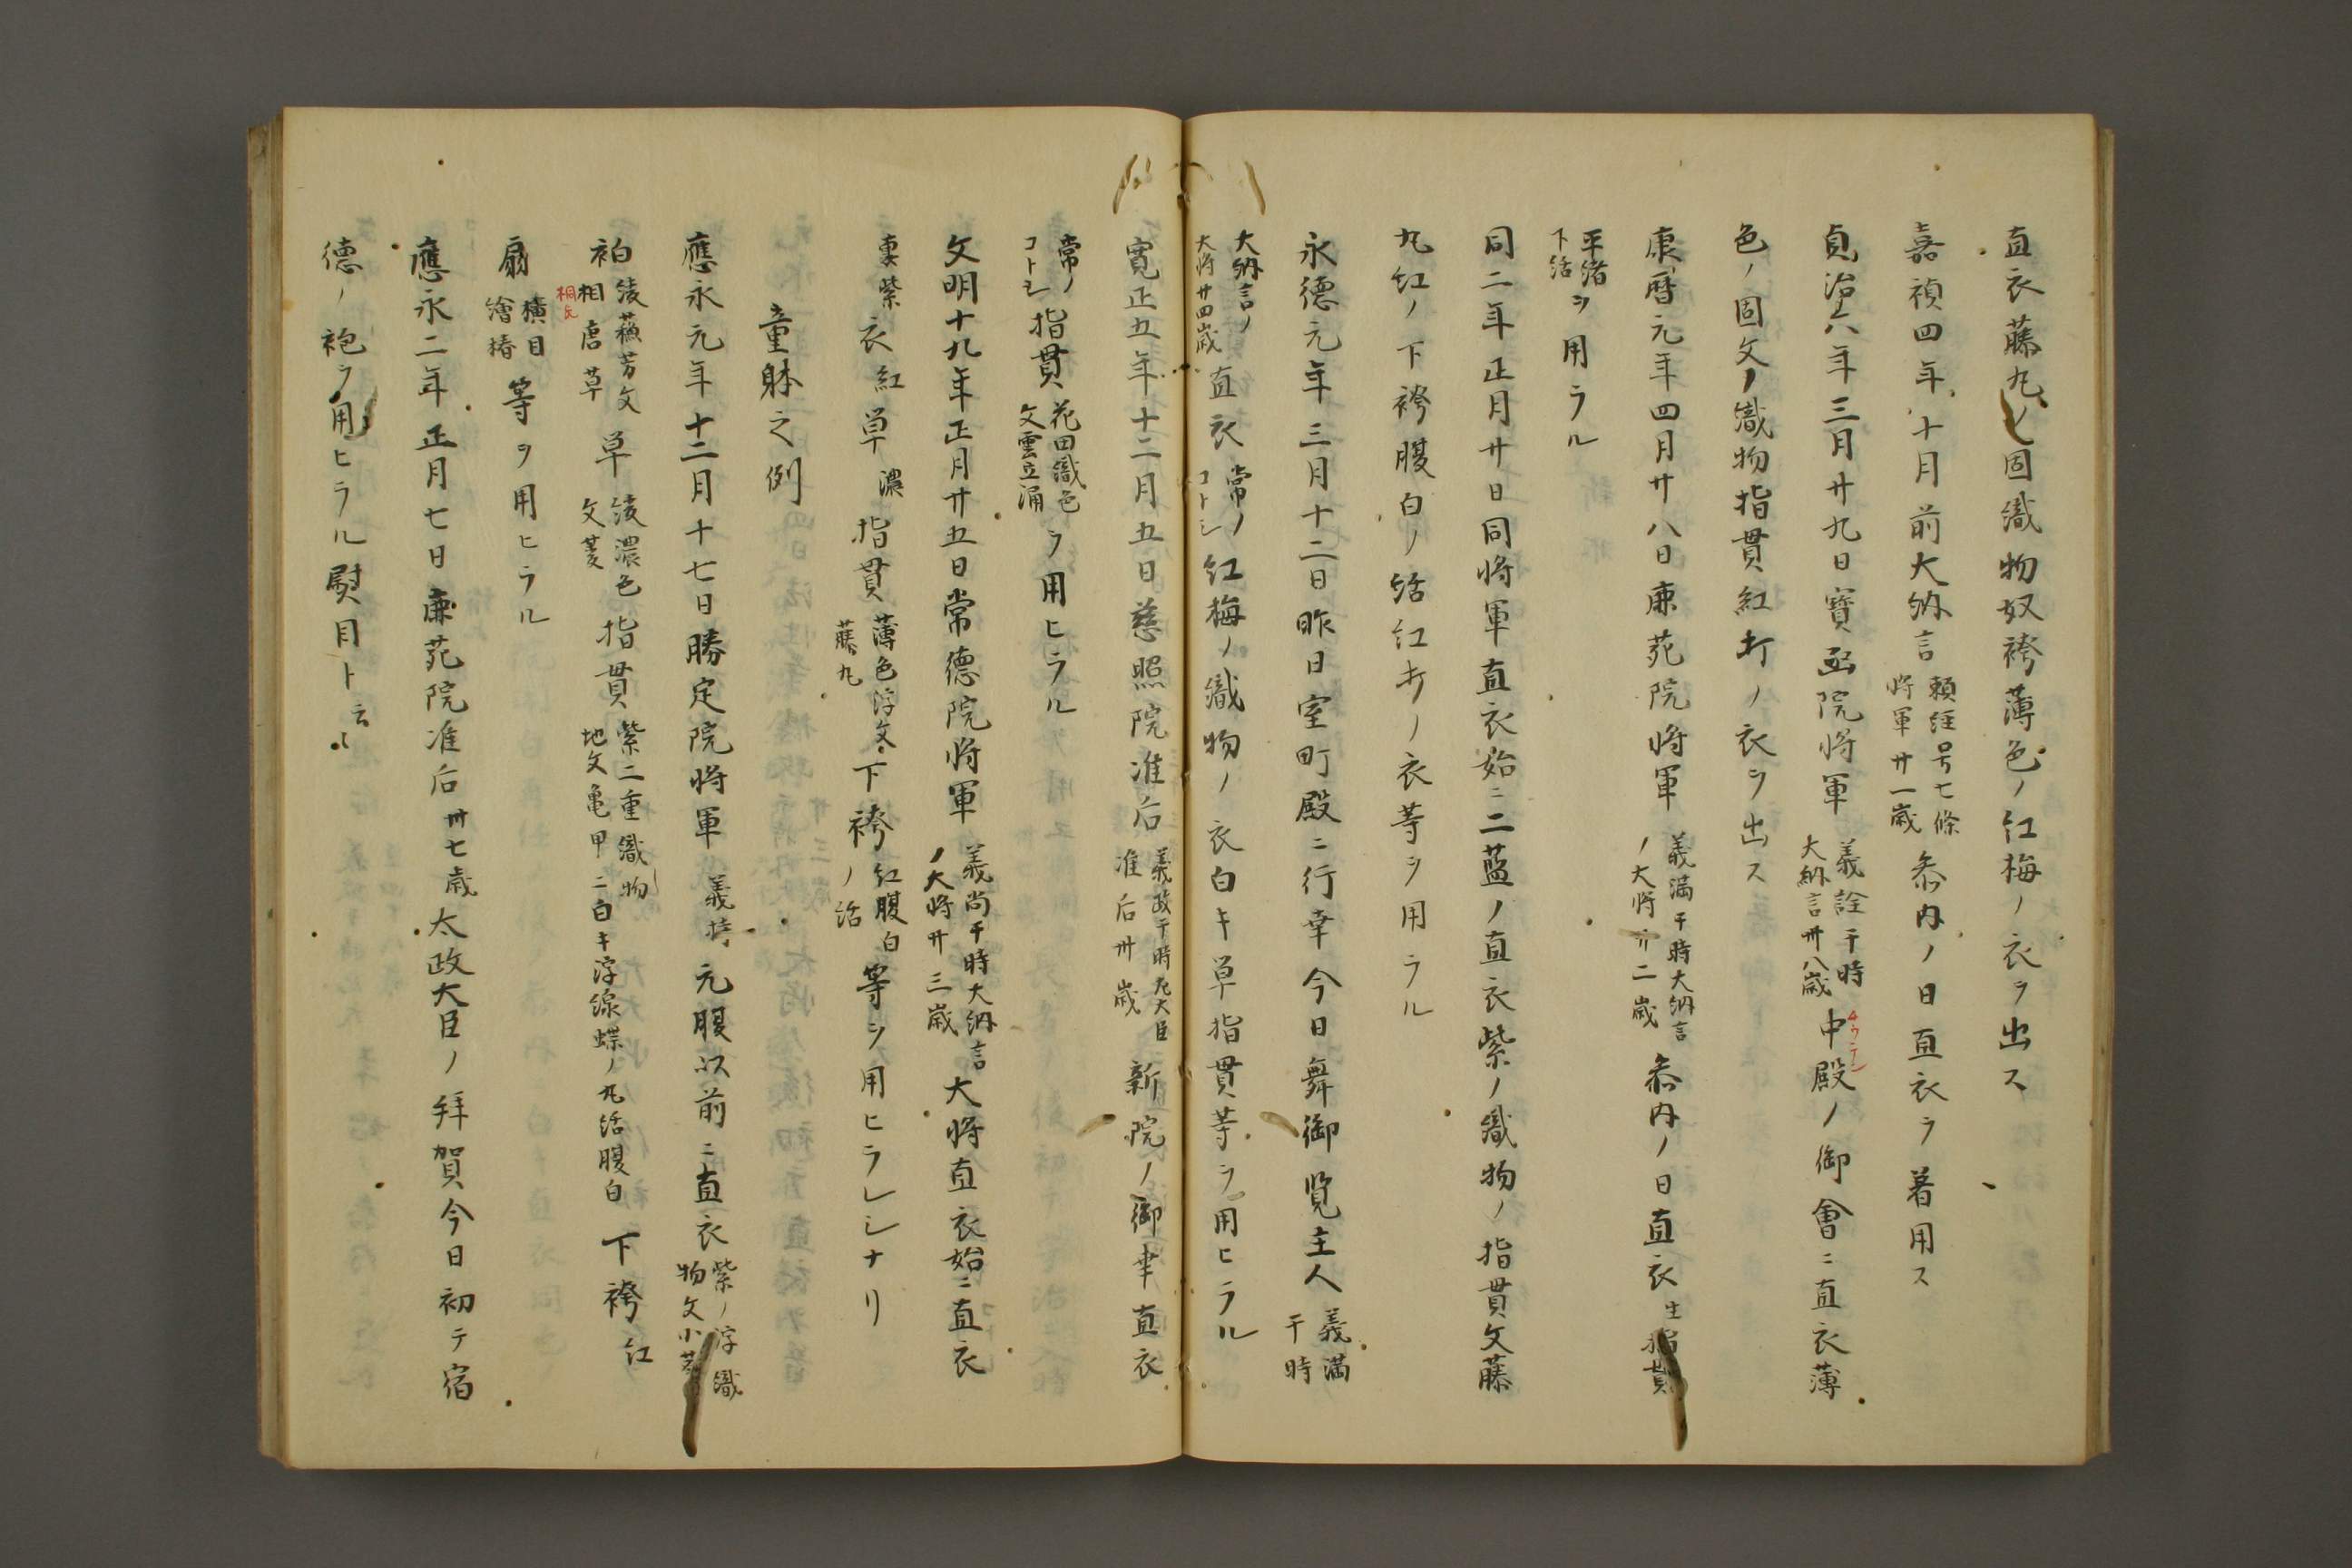 直衣藤丸ノ固織物奴袴薄色ノ紅梅ノ衣ヲ出ス
嘉禎四年十月前大納言
頼経号七條
将軍廿一歳
参内ノ日直衣ヲ著用ス
貞治六年三月廿九日寳筐院将軍
義詮于時
大納言卅八歳
中殿ノ御會ニ直衣薄
色ノ固文ノ織物指貫紅打ノ衣ヲ出ス
康暦元年四月廿八日鹿苑院将軍
義満于時大納言
ノ大将廿二歳
参内ノ日直衣
生指貫
平絡
下括
ヲ用ラル
同二年正月廿日同将軍直衣始ニ二藍ノ直衣紫ノ織物ノ指貫文藤
丸紅ノ下袴腹白ノ括紅打ノ衣等ヲ用ラル
永德元年三月十二日昨日室町殿ニ行幸今日舞御覧主人
義満
于時
大納言ノ
大将廿四歳
直衣
常ノ
コトシ
紅梅ノ織物ノ衣白キ単指貫等ヲ用ヒラル
寛正五年十二月五日慈照院准后
義政于時左大臣
准后卅歳
新院ノ御車直衣
常ノ
コトシ
指貫
花田織色
文雲立涌
ヲ用ヒラル
文明十九年正月廿五日常德院将軍
義尚于時大納言
ノ大将廿三歳
大将直衣始ニ直衣
裏紫
衣
紅
単
濃
指貫
薄色浮文
藤丸
下袴
紅腹白
ノ括
等ヲ用ヒラレシナリ
童躰之例
應永元年十二月十七日勝定院将軍
義持
元服以前ニ直衣
紫ノ浮織
物文小葵
衵
綾蘓芳文
桐唐草
単
綾濃色
文菱
指貫
紫二重織物
地文亀甲ニ白キ浮線蝶ノ丸括腹白
下袴
紅
扇
横目
繪椿
等ヲ用ヒラル
應永二年正月七日鹿苑院准后
卅七歳
太政大臣ノ拜賀今日初テ宿
德ノ袍ヲ用ヒラル熨目ト云々